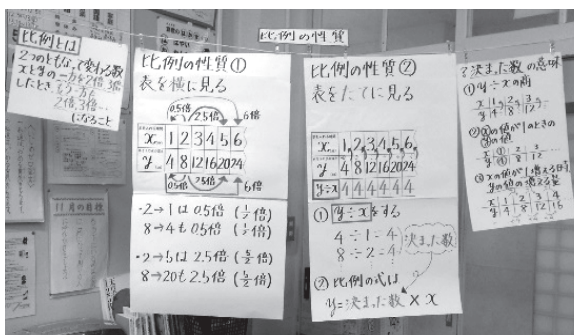 比例の性質
比例とは
2つのともなって変わる数
xとyの一方を2倍、3倍…
したとき、もう一方も
2倍、3倍…
になること
比例の性質①
表を横に見る
0.5倍 2.5倍 6倍
x 1 2 3 4 5 6
y 4 8 12 16 20 24
0.5倍 2.5倍 6倍
・2→1は0.5倍(1/2倍)
8→4も0.5倍(1/2倍)
・2→5は2.5倍(5/2倍)
8→20も2.5倍(5/2倍)
比例の性質②
表をたてに見る
x 1 2 3 4 5 6
y 4 8 12 16 20 24
y÷x 4 4 4 4 4 4
① y÷xをする
4÷1=4
8÷2=4
決まった数
② 比例の式は
y=決まった数×x
決まった数の意味
①y÷xの商
x 1 2 3
y 4 8 12
②xの値が1のときの
yの値
x 1 2 3
y 4 8 12
③xの値が1増える時
yの値の増える量
x 1 2 3 4
y 4 8 12 16
11月の目標